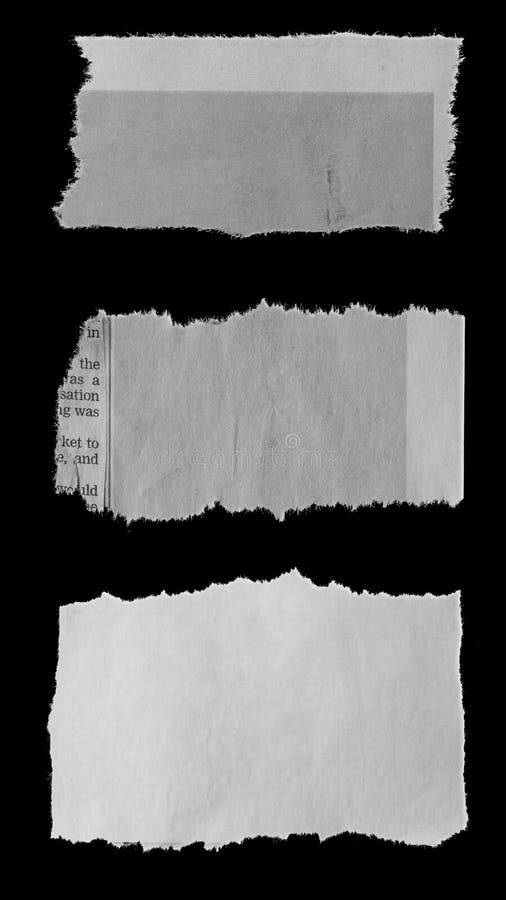 in
the
as a
sation
ng was
ket to
e, and
would
ee
dreamstime